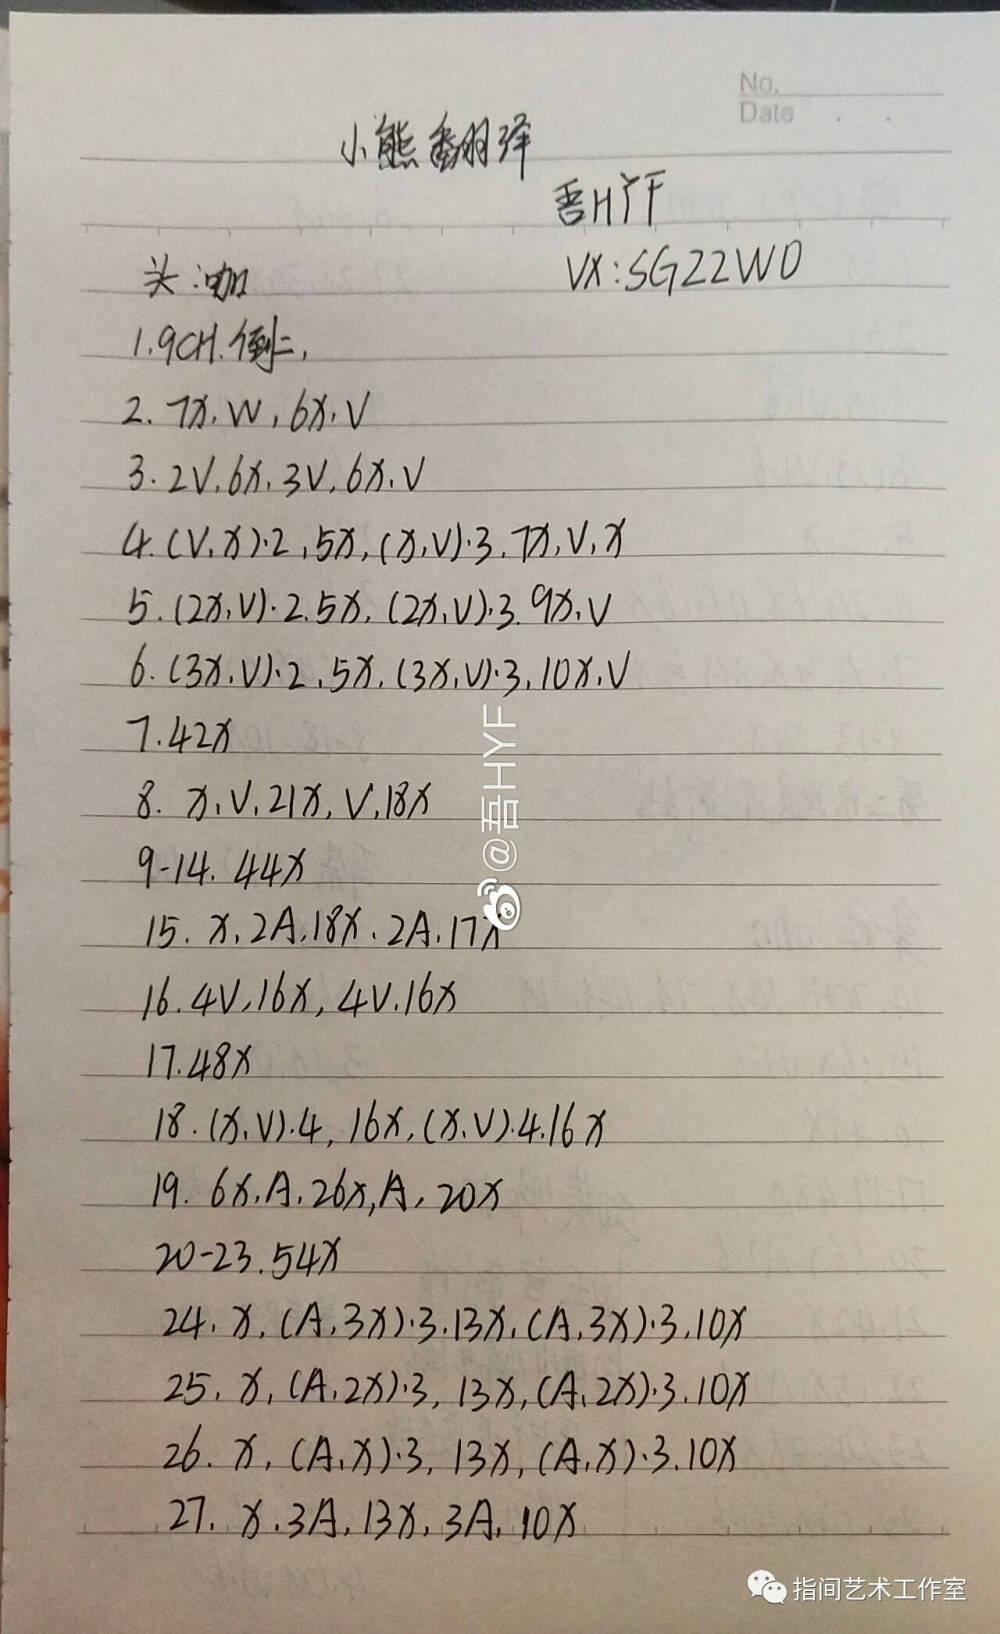 No.
Date
小熊翻译
吾HYF
头:咖
VX:SG22WD
1.9CH.倒二,
2.7X.W,6X.V
3.2V,6X.3V,6X.V
4.(V.X)·2,5X,(X,V)·3.7X,V,X
5.(2X,V)·2.5X,(2X,V)·3.9X,V
6.(3X,V)·2,5X.(3X,V)·3,10X,V
7.42X
8.X,V,21X,V,18X
9-14.44X
15.X,2A,18X.2A,17X
16.4V,16X,4V.16X
17.48X
18.(X,V)·4,16X,(X,V)·4.16X
19.6X,A,26X,A,20X
20-23.54X
24.X,(A,3X)·3.13X,(A,3X)·3.10X
25.X,(A,2X)·3,13X,(A,2X)·3.10X
26.X,(A,X)·3,13X,(A,X)·3.10X
27.X.3A,13X,3A,10X
@吾HYF
指间艺术工作室